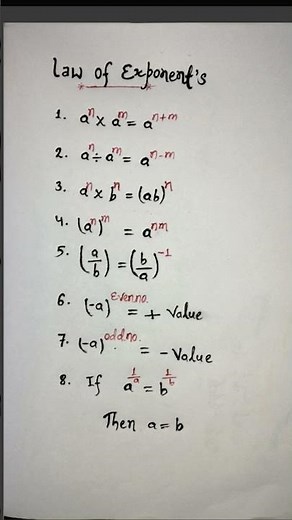 Law of Exponent's
1. aⁿ × aᵐ = aⁿ⁺ᵐ
2. aⁿ ÷ aᵐ = aⁿ⁻ᵐ
3. aⁿ × bⁿ = (ab)ⁿ
4. (aⁿ)ᵐ = aⁿᵐ
5. (a/b) = (b/a)⁻¹
6. (-a)^Even no. = + Value
7. (-a)^odd no. = - Value
8. If a^(1/a) = b^(1/b)
Then a = b